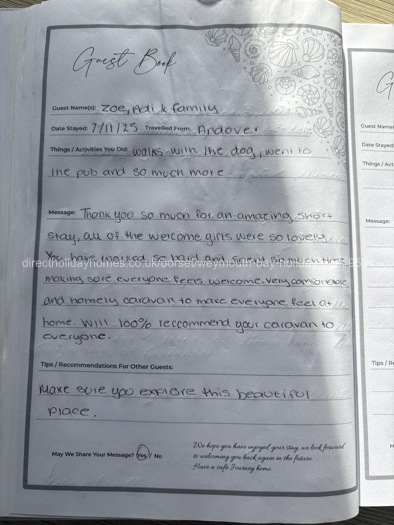 Guest Book
Guest Name(s): Zoe, Adi & family
Date Stayed: 7/11/25 Travelled From: Andover
Things / Activities You Did: walks with the dog, went to
the pub and so much more.
Message: Thank you so much for an amazing short
stay, all of the welcome gifts were so lovely.
You have worked so hard and spent so much time
directholidayhomes.co.uk/dorset/weymouth-bay-holiday
making sure everyone feels welcome. very
and homely caravan to make everyone feel at
home. Will 100% reccommend your caravan to
everyone.
Tips / Recommendations For Other Guests:
Make sure you explore this beautiful
place.
May We Share Your Message? Yes / No
We hope you have enjoyed your stay, we look forward
to welcoming you back again in the future.
Have a safe Journey home.
G
Guest Name
Date Stayed
Things / Act
Message:
Tips / R
M